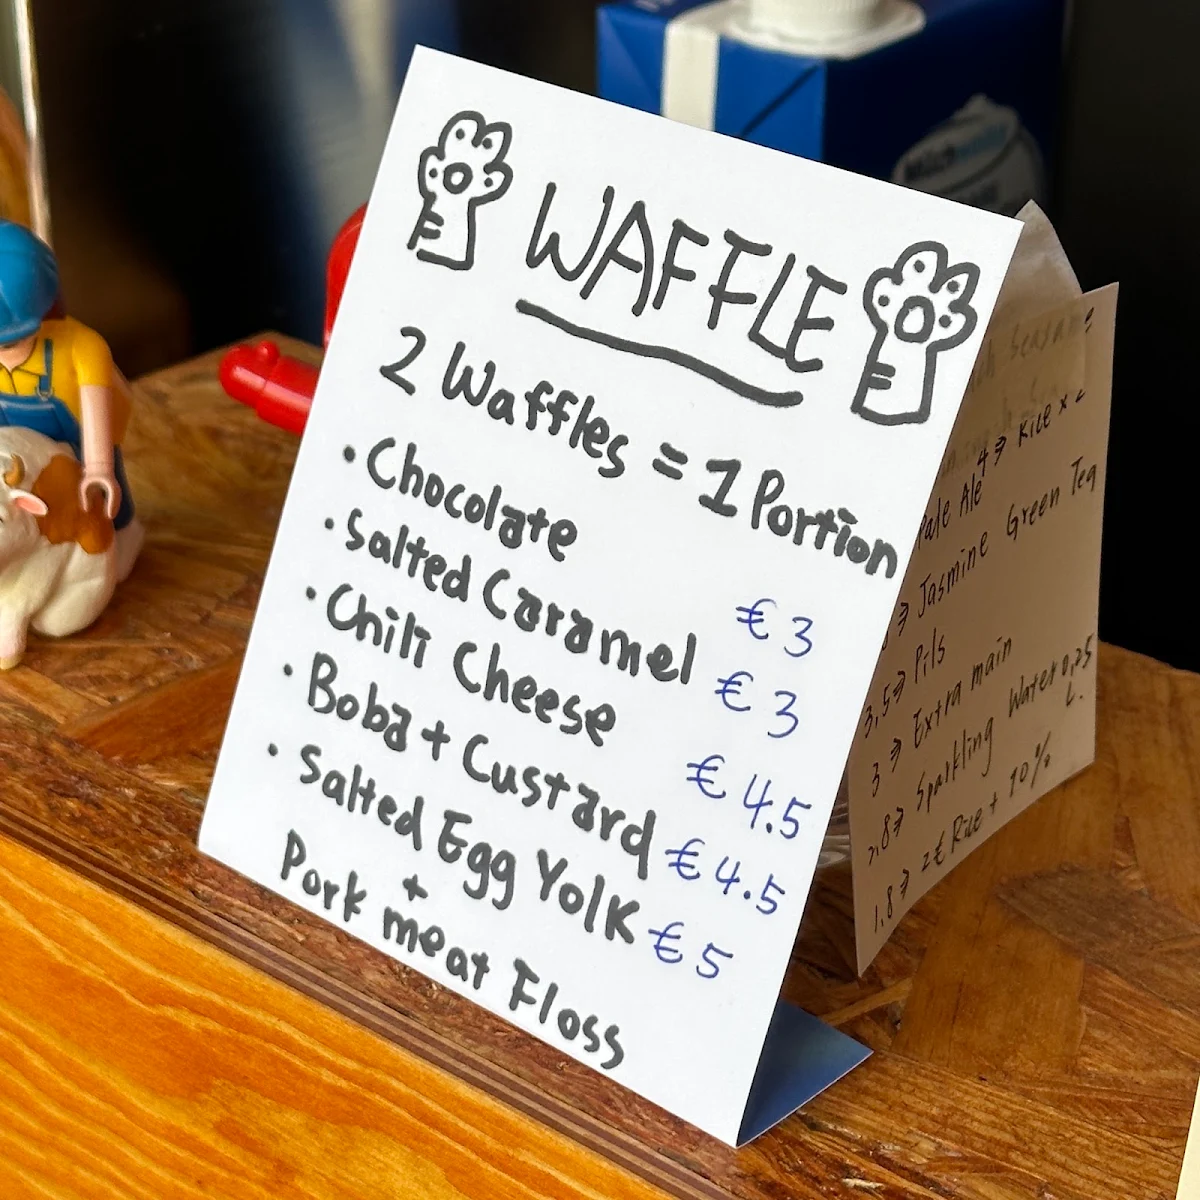 WAFFLE
2 Waffles = 1 Portion
· Chocolate € 3
· Salted Caramel € 3
· Chili Cheese € 4.5
· Boba + Custard € 4.5
· Salted Egg Yolk € 5
+
Pork meat Floss
Milch
Rice x 2
Pale Ale 4
Jasmine Green Tea
3,5 Pils
3 Extra main
Sparkling Water 0,25 L.
1.8 2€ Rice + 10%